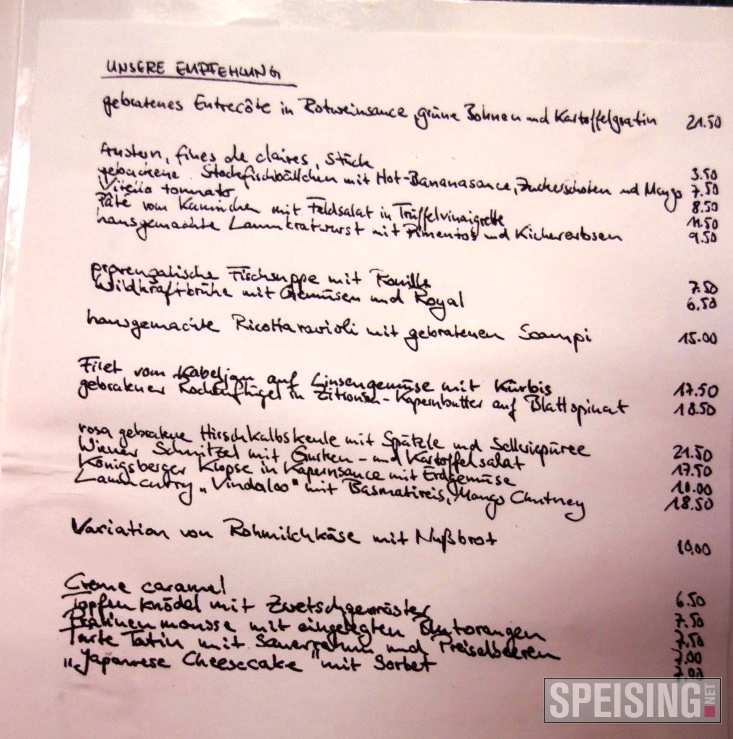 UNSERE EMPFEHLUNG
gebratenes Entrecôte in Rotweinsauce, grüne Bohnen und Kartoffelgratin 21.50
Austern, fines de claires, Stück 3.50
gebackene Stockfischbällchen mit Hot-Bananasauce, Zuckerschoten und Mango 7.50
Vitello tonnato 8.50
Pâté vom Kaninchen mit Feldsalat in Trüffelvinaigrette 11.50
hausgemachte Lammbratwurst mit Pimentos und Kichererbsen 9.50
provenzalische Fischsuppe mit Rouille 7.50
Wildkraftbrühe mit Gemüsen und Royal 6.50
hausgemachte Ricottaravioli mit gebratenen Scampi 15.00
Filet vom Kabeljau auf Linsengemüse mit Kürbis 17.50
gebratener Rochenflügel in Zitronen-Kapernbutter auf Blattspinat 18.50
rosa gebratene Hirschkalbskeule mit Spätzle und Selleriepüree 21.50
Wiener Schnitzel mit Gurken- und Kartoffelsalat 17.50
Königsberger Klopse in Kapernsauce mit Erdgemüse
Lammcurry „Vindaloo" mit Basmatireis, Mango Chutney 18.50
Variation von Rohmilchkäse mit Nußbrot 10.00
Crème caramel 6.50
Topfenknödel mit Zwetschgenröster 7.50
Pralinenmousse mit eingelegten Blutorangen 7.50
Tarte Tatin mit Sauerrahm und Preiselbeeren 7.00
„Japanese Cheesecake" mit Sorbet
SPEISING.NET